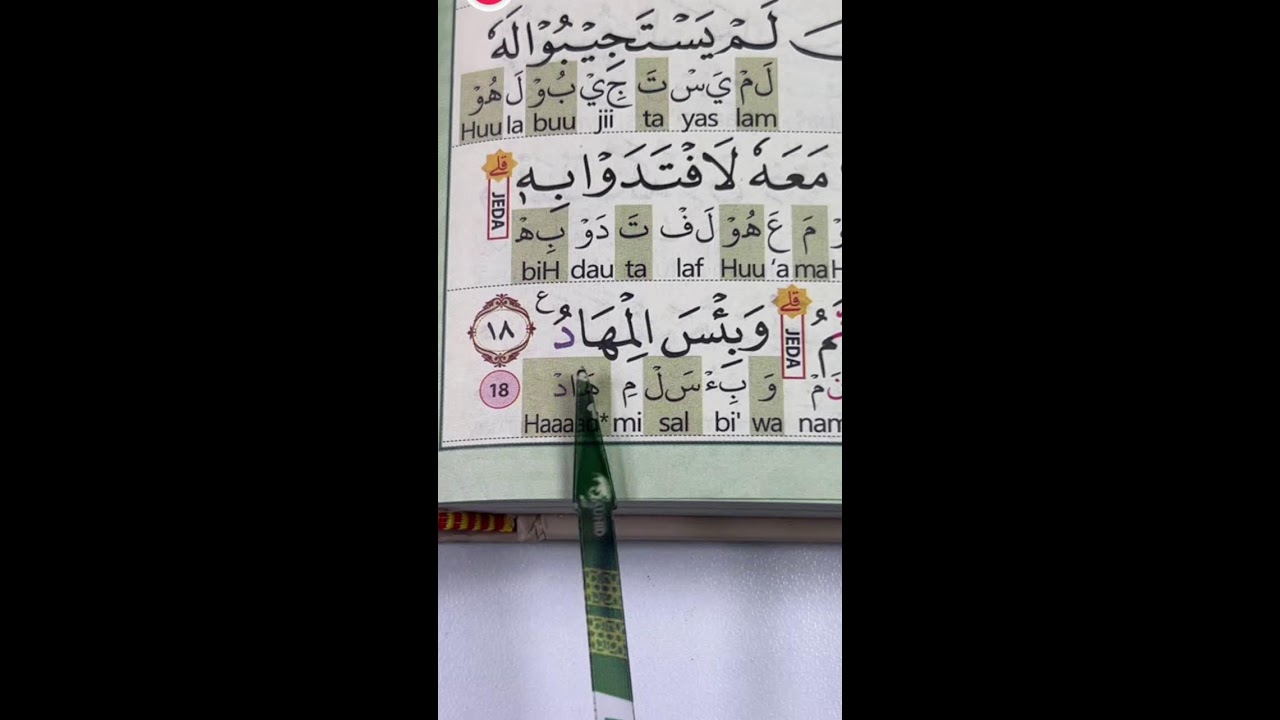 لَمْ يَسْتَجِيْبُوْا لَهٗ
لَمْ يَسْ تَ جِيْ بُوْ لَ هُوْ
Huu la buu jii ta yas lam
مَعَهٗ لَافْتَدَوْا بِهٖ ۗ قلى JEDA
مَ عَ هُوْ لَفْ تَ دَوْ بِهْ
biH dau ta laf Huu 'a ma
قلى JEDA وَبِئْسَ الْمِهَادُ ع ١٨
نَمْ وَ بِءْ سَلْ مِ هَادْ 18
mi sal bi' wa nam